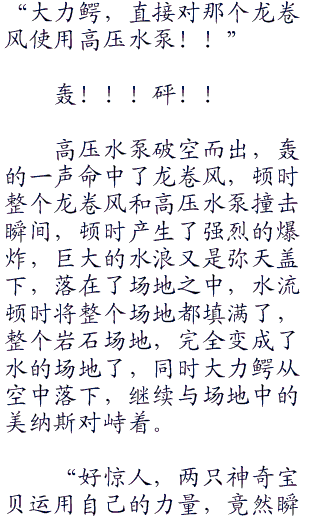 “大力鳄，直接对那个龙卷
风使用高压水泵！！”
轰！！！砰！！
高压水泵破空而出，轰
的一声命中了龙卷风，顿时
整个龙卷风和高压水泵撞击
瞬间，顿时产生了强烈的爆
炸，巨大的水浪又是弥天盖
下，落在了场地之中，水流
顿时将整个场地都填满了，
整个岩石场地，完全变成了
水的场地了，同时大力鳄从
空中落下，继续与场地中的
美纳斯对峙着。
“好惊人，两只神奇宝
贝运用自己的力量，竟然瞬